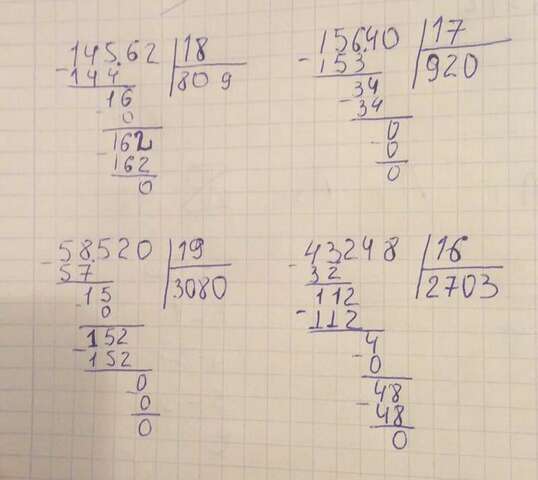 -145.62 | 18
144 | 809
-16
0
-162
162
0
-156.40 | 17
153 | 920
-34
34
-0
0
0
-58.520 | 19
57 | 3080
-15
0
-152
152
-0
0
0
-43248 | 16
32 | 2703
112
-112
4
-0
48
-48
0